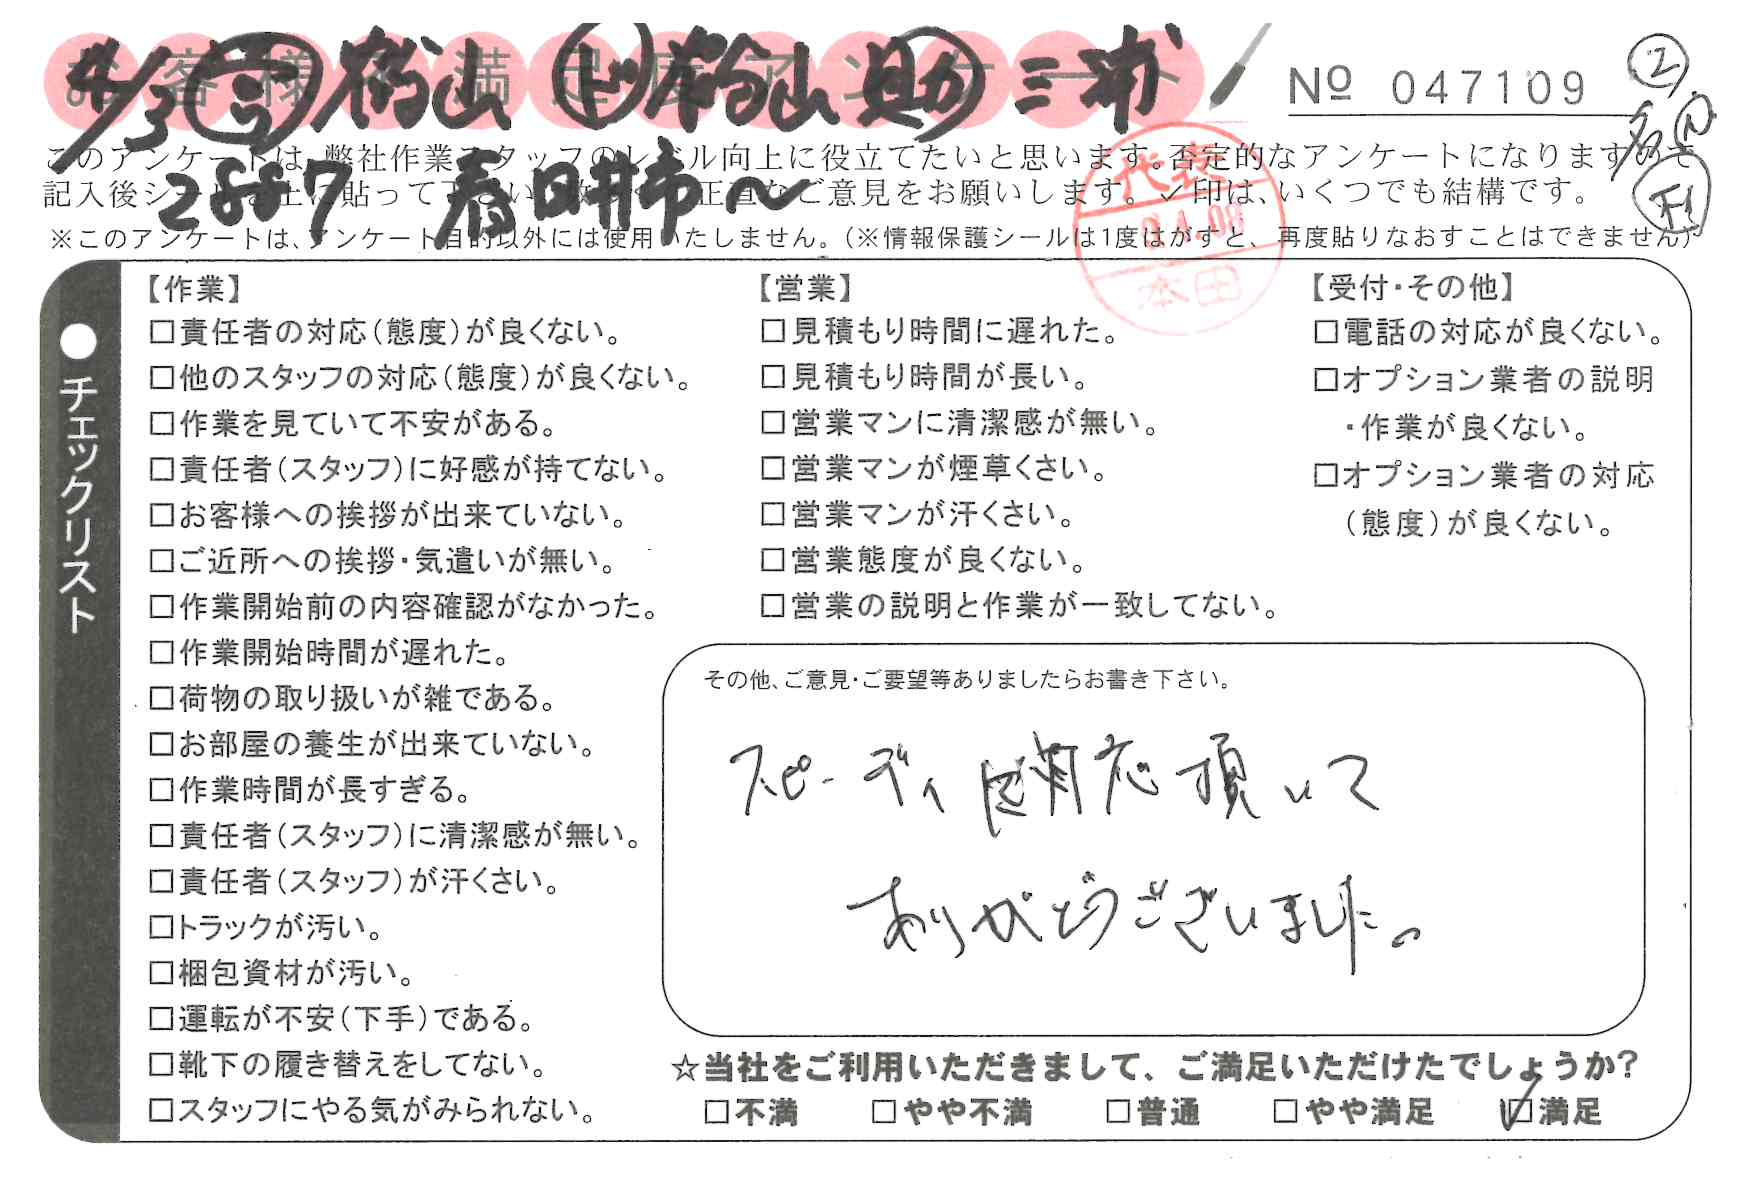 お客様不満足度アンケート
№ 047109
②
4/3 引 横山 ド 桧山 助 三浦
2887 春日井市〜
このアンケートは、弊社作業スタッフのレベル向上に役立てたいと思います。否定的なアンケートになりますので
記入後シールを上に貼って下さい。正直なご意見をお願いします。✓印は、いくつでも結構です。
※このアンケートは、アンケート目的以外には使用いたしません。(※情報保護シールは1度はがすと、再度貼りなおすことはできません)
代表
本田
●チェックリスト
【作業】
□責任者の対応(態度)が良くない。
□他のスタッフの対応(態度)が良くない。
□作業を見ていて不安がある。
□責任者(スタッフ)に好感が持てない。
□お客様への挨拶が出来ていない。
□ご近所への挨拶・気遣いが無い。
□作業開始前の内容確認がなかった。
□作業開始時間が遅れた。
□荷物の取り扱いが雑である。
□お部屋の養生が出来ていない。
□作業時間が長すぎる。
□責任者(スタッフ)に清潔感が無い。
□責任者(スタッフ)が汗くさい。
□トラックが汚い。
□梱包資材が汚い。
□運転が不安(下手)である。
□靴下の履き替えをしてない。
□スタッフにやる気がみられない。
【営業】
□見積もり時間に遅れた。
□見積もり時間が長い。
□営業マンに清潔感が無い。
□営業マンが煙草くさい。
□営業マンが汗くさい。
□営業態度が良くない。
□営業の説明と作業が一致してない。
【受付・その他】
□電話の対応が良くない。
□オプション業者の説明
・作業が良くない。
□オプション業者の対応
(態度)が良くない。
その他、ご意見・ご要望等ありましたらお書き下さい。
スピーディに対応頂いて
ありがとうございました。
☆当社をご利用いただきまして、ご満足いただけたでしょうか?
□不満 □やや不満 □普通 □やや満足 ☑満足